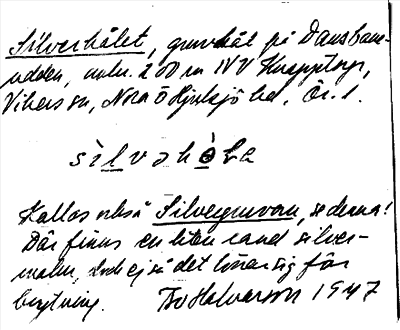 Silverhålet, gruvhål på Dansbane-
udden, omkr. 200 m NV Knapptorp,
Vikers sn, Nora o Hjulsjö hd, Ör. l.
sìlvəhòLa
Kallas också Silvergruvan, se denna!
Där finns en liten rand silver-
malm, dock ej så det lönar sig för
brytning. Tv Halvarson 1947